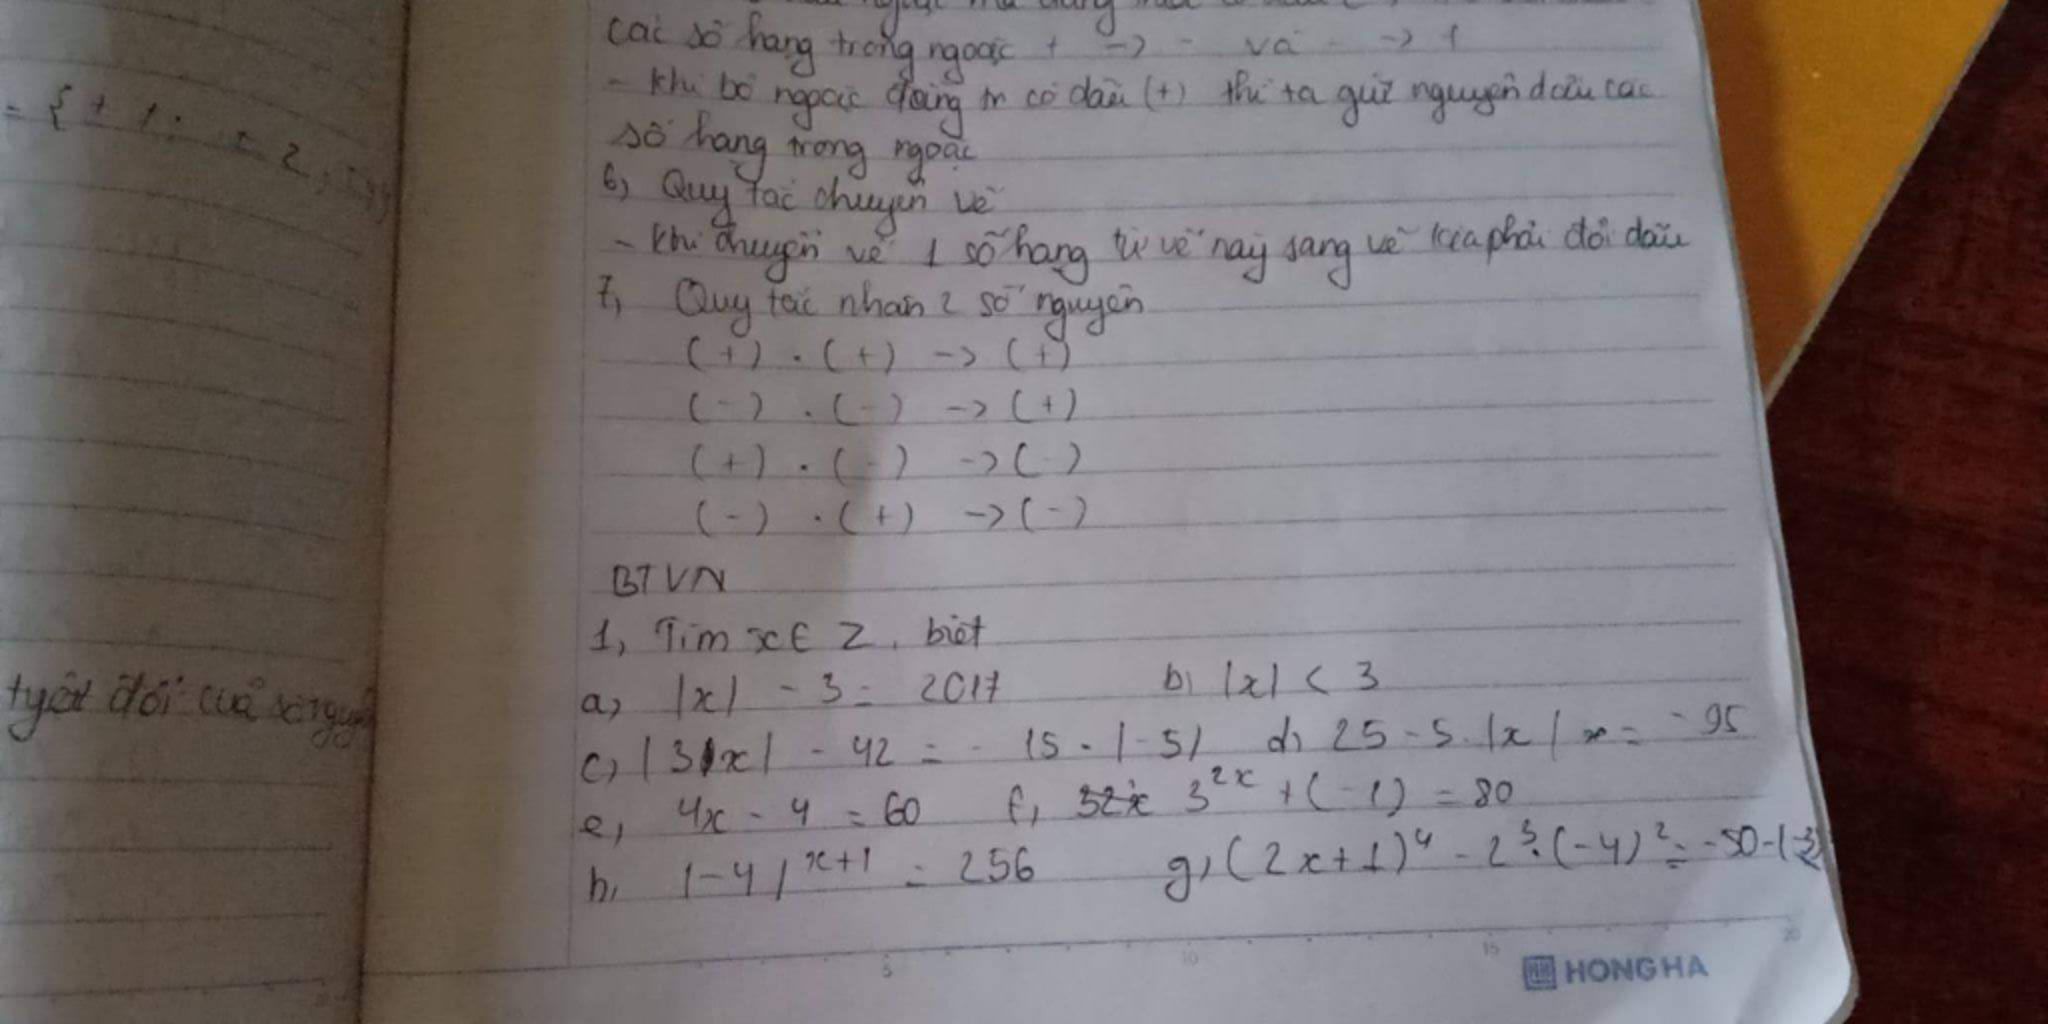 các số hạng trong ngoặc + -> - và - -> +
- Khi bỏ ngoặc đằng tr có dấu (+) thì ta giữ nguyên dấu các
số hạng trong ngoặc
6, Quy tắc chuyển vế
- Khi chuyển vế 1 số hạng từ vế này sang vế kia phải đổi dấu
7, Quy tắc nhân 2 số nguyên
(+) . (+) -> (+)
(-) . (-) -> (+)
(+) . (-) -> (-)
(-) . (+) -> (-)
BTVN
1, Tìm x ∈ Z, biết
a, |x| - 3 = 2017 b, |x| < 3
c, |3x| - 42 = - 15 . |-5| d, 25 - 5 . |x| = -95
e, 4x - 4 = 60 f, 3^2x + (-1) = 80
h, |-4|^x+1 = 256 g, (2x+1)^4 - 2^3 . (-4)^2 = -50 -
= { + 1; ± 2,
tuyệt đối của số nguyê
5 10 15 20
HONG HA